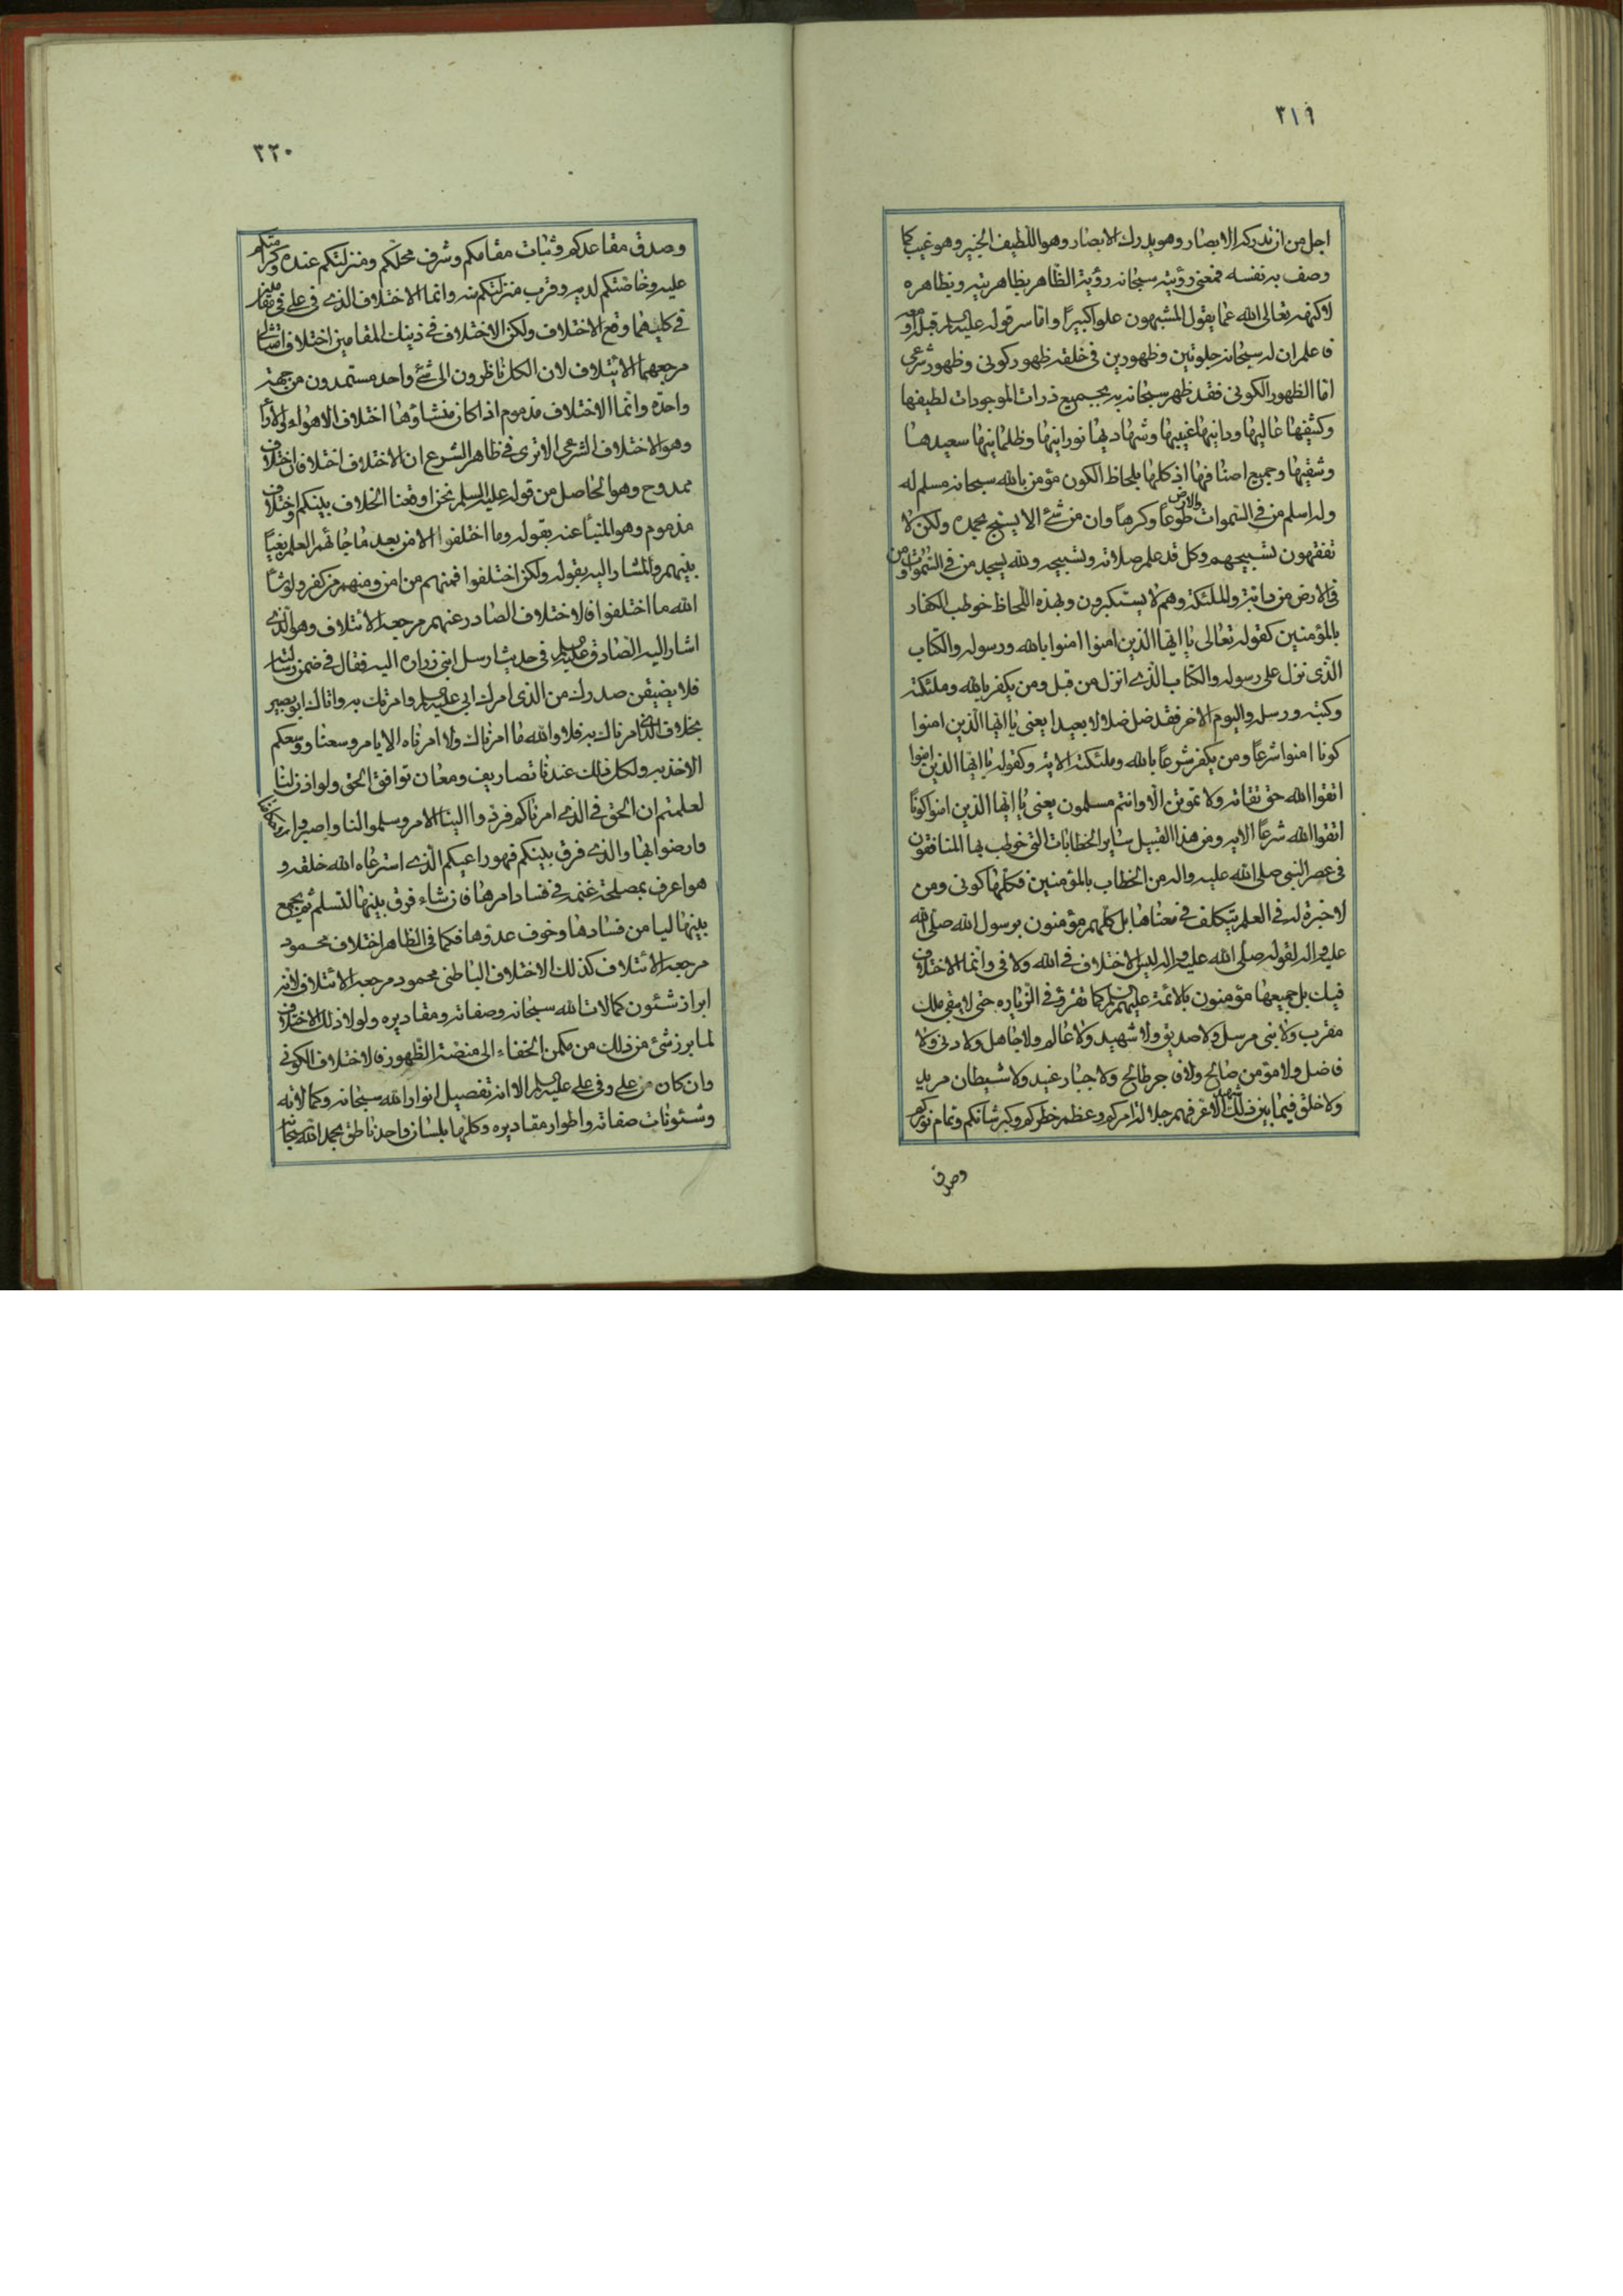 ٣١٩
اجل من ان تدركه الابصار وهو يدرك الابصار وهو اللطيف الخبير وهو غيب كما
وصف به نفسه فمعنى رؤيته سبحانه رؤية الظاهر بظاهريته وبظاهره
لا كنهه تعالى الله عما يقول المشبهون علوا كبيرًا واما سر قوله عليه السلم قبل او بعد
فاعلم ان له سبحانه جلوتين وظهورين في خلقه ظهور كونى وظهور شرعى
اما الظهور الكونى فقد ظهر سبحانه به بجميع ذرات الموجودات لطيفها
وكثيفها عاليها ودانيها غيبيها وشهاديها نورانيها وظلمانيها سعيدها
وشقيها وجميع اصنافها اذ كلها بلحاظ الكون مؤمن بالله سبحانه مسلم له
وله اسلم من في السموات والارض طوعًا وكرهًا وان من شئ الا يسبح بحمده ولكن لا
تفقهون تسبيحهم وكل قد علم صلاته وتسبيحه ولله يسجد من في السموات ومن
في الارض من دابة والملئكة وهم لا يستكبرون وبهذه اللحاظ خوطب الكفار
بالمؤمنين كقوله تعالى يا ايها الذين امنوا امنوا بالله ورسوله والكتاب
الذى نزل على رسوله والكتاب الذى انزل من قبل ومن يكفر بالله وملئكته
وكتبه ورسله واليوم الاخر فقد ضل ضلالا بعيدا يعنى يا ايها الذين امنوا
كونا امنوا شرعًا ومن يكفر شرعًا بالله وملئكته الاية وكقوله يا ايها الذين امنوا
اتقوا الله حق تقاته ولا تموتن الا وانتم مسلمون يعنى يا ايها الذين امنوا كونًا
اتقوا الله شرعًا الاية ومن هذا القبيل ساير الخطابات التى خوطب بها المنافقون
في عصر النبى صلى الله عليه واله من الخطاب بالمؤمنين فكلها كونى ومن
لا خبرة له في العلم يتكلف في معناها بل كلهم مؤمنون برسول الله صلى الله
عليه واله لقوله صلى الله عليه واله ليس الاختلاف في الله ولا في وانما الاختلاف
فيك بل جميعها مؤمنون بالائمة عليهم السلم كما تقرؤ في الزياره حتى لا يبقى ملك
مقرب ولا نبى مرسل ولا صديق ولا شهيد ولا عالم ولا جاهل ولا دنى ولا
فاضل ولا مؤمن صالح ولا فاجر طالح ولا جبار عنيد ولا شيطان مريد
ولا خلق فيما بين ذلك شهيد الا عرفهم جلالة امركم وعظم خطركم وكبر شانكم وتمام نوركم
وصدق
٣٢٠
وصدق مقاعدكم وثبات مقامكم وشرف محلكم ومنزلتكم عنده وكرامتكم
عليه وخاصتكم لديه وقرب منزلتكم منه وانما الاختلاف الذى في على في مقامين
في كليهما وقع الاختلاف ولكن الاختلاف في ذينك المقامين اختلاف امتثالى
مرجعهما الائتلاف لان الكل ناظرون الى شئ واحد مستمدون من جهة
واحده وانما الاختلاف مذموم اذا كان منشاؤها اختلاف الاهواء والاراء
وهو الاختلاف الشرعى الا ترى في ظاهر الشرع ان الاختلاف اختلافان اختلاف
ممدوح وهو الحاصل من قوله عليه السلم نحن اوقعنا الخلاف بينكم واختلاف
مذموم وهو المنبأ عنه بقوله وما اختلفوا الا من بعد ما جائهم العلم بغيًا
بينهم والمشار اليه بقوله ولكن اختلفوا فمنهم من امن ومنهم من كفر ولو شاء
الله ما اختلفوا فالاختلاف الصادر عنهم مرجعه الائتلاف وهو الذى
اشار اليه الصادق عليه السلم في حديث ارسل ابنى زراره اليه فقال في ضمن رسالته
فلا يضيقن صدرك من الذى امرك ابى عليه السلم وامرتك به واتاك ابو بصير
بخلاف الذى امرناك به فلا والله ما امرناك ولا امرناه الا بامر وسعنا ووسعكم
الاخذ به ولكل ذلك عندنا تصاريف ومعان توافق الحق ولو اذن لنا
لعلمتم ان الحق في الذى امرناكم فردوا الينا الامر وسلموا لنا واصبروا
وارضوا بها والذى فرق بينكم فهو راعيكم الذى استرعاه الله خلقه و
هو اعرف بمصلحة غنمه في فساد امرها فان شاء فرق بينها لتسلم ثم يجمع
بينها ليامن فسادها وخوف عدوها فكما في الظاهر اختلاف محمود
مرجعه الائتلاف كذلك الاختلاف الباطنى محمود مرجعه الائتلاف لانه
ابراز شئون كمالات الله سبحانه وصفاته ومقاديره ولولا ذلك الاختلاف
لما برز شئ من ذلك من مكمن الخفاء الى منصة الظهور فالاختلاف الكونى
وان كان من على وفى على عليه السلم الا انه تفصيل انوار الله سبحانه وكمالاته
وشئونات صفاته واطوار مقاديره وكلها بلسان واحد ناطق بحمد الله سبحانه